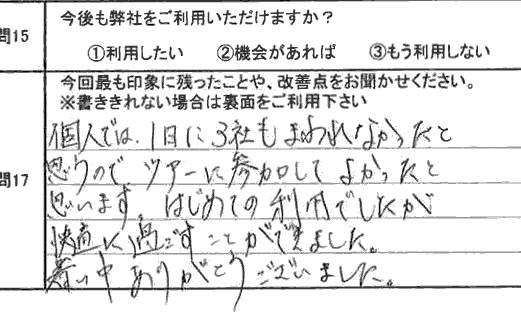 問15
今後も弊社をご利用いただけますか？
①利用したい　②機会があれば　③もう利用しない
今回最も印象に残ったことや、改善点をお聞かせください。
※書ききれない場合は裏面をご利用下さい
問17
個人では、1日に3社もまわれなかったと
思うので、ツアーに参加してよかったと
思います。はじめての利用でしたが
快適に過ごすことができました。
暑い中ありがとうございました。